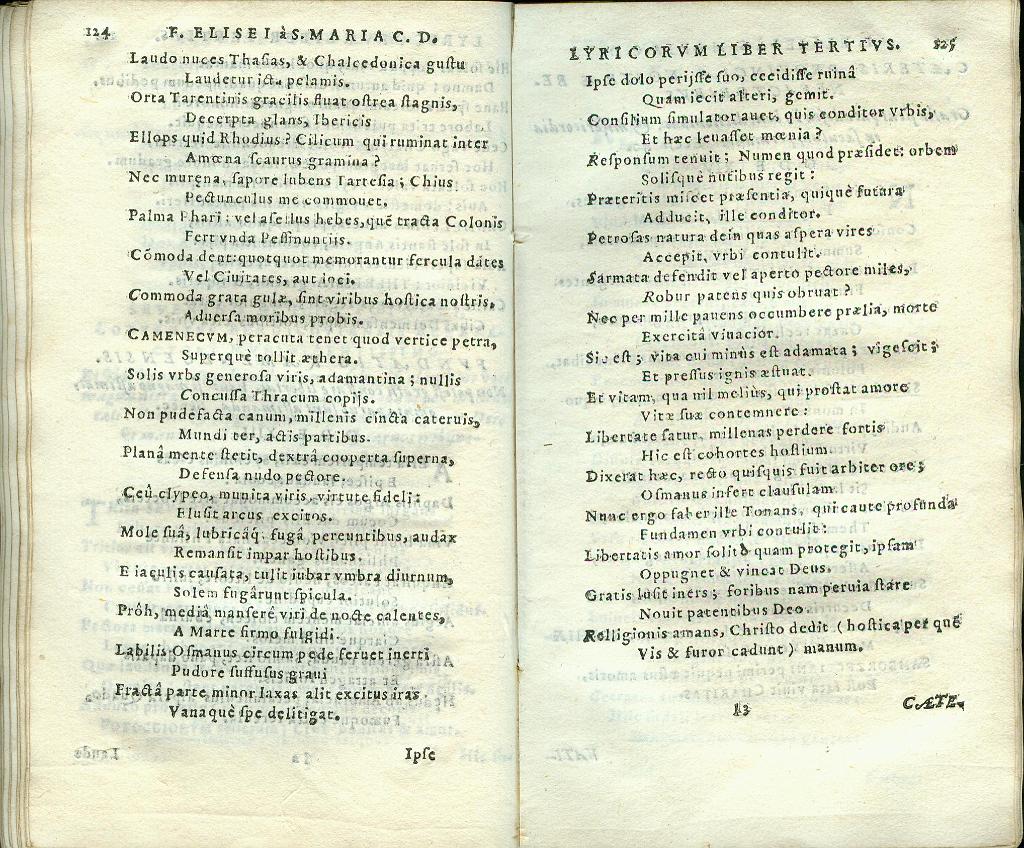 124 F. ELISEI à S. MARIA C. D.
Laudo nuces Thaſias, & Chalcedonica guſtu
Laudetur icta pelamis.
Orta Tarentinis gracilis fluat oſtrea ſtagnis,
Decerpta glans, Ibericis
Ellops quid Rhodius? Cilicum qui ruminat inter
Amœna ſcaurus gramina?
Nec murena, ſapore lubens Tarteſia; Chius
Pectunculus me commouet.
Palma Phari: vel aſellus hebes, quē tracta Colonis
Fert vnda Peſſinuntijs.
Cōmoda dent: quotquot memorantur fercula dātes
Vel Ciuitates, aut loci.
Commoda grata gulæ, ſint viribus hoſtica noſtris,
Aduerſa moribus probis.
CAMENECVM, peracuta tenet quod vertice petra,
Superquè tollit æthera.
Solis vrbs generoſa viris, adamantina; nullis
Concuſſa Thracum copijs.
Non pudefacta canum, millenis cincta cateruis,
Mundi ter, actis partibus.
Planâ mente ſtetit, dextrâ cooperta ſuperna,
Defenſa nudo pectore.
Ceû clypeo, munita viris, virtute fideli:
Eluſit arcus excitos.
Mole ſuâ, lubricâq; fugâ pereuntibus, audax
Remanſit impar hoſtibus.
E iaculis cauſata, tulit iubar vmbra diurnum,
Solem fugârunt ſpicula.
Prôh, mediâ manſerê viri de nocte calentes,
A Marte firmo fulgidi.
Labilis Oſmanus circum pede feruet inerti
Pudore ſuffuſus graui
Fractâ parte minor laxas alit excitus iras.
Vanaquè ſpe delitigat.
Ipſe
LYRICORVM LIBER TERTIVS. 125
Ipſe dolo perijſſe ſuo, cecidiſſe ruinâ
Quam iecit alteri, gemit.
Conſilium ſimulator auet, quis conditor vrbis,
Et hæc leuaſſet mœnia?
Reſponſum tenuit; Numen quod præſidet: orbem
Soliſquè nutibus regit:
Præteritis miſcet præſentia, quiquè futura
Adducit, ille conditor.
Petroſas natura dein quas aſpera vires
Accepit, vrbi contulit.
Sarmata defendit vel aperto pectore miles,
Robur patens quis obruat?
Nec per mille pauens occumbere prælia, morte
Exercitâ viuacior.
Sic eſt; vita cui minùs eſt adamata; vigeſcit;
Et preſſus ignis æſtuat.
Et vitam, qua nil meliùs, qui proſtat amore
Vitæ ſuæ contemnere:
Libertate ſatur, millenas perdere fortis
Hic eſt cohortes hoſtium
Dixerat hæc, recto quiſquis fuit arbiter ore;
Oſmanus infert clauſulam
Nunc ergo faber ille Tonans, qui caute profunda
Fundamen vrbi contulit:
Libertatis amor ſolitò quam protegit, ipſam
Oppugnet & vincat Deus.
Gratis luſit iners; foribus nam peruia ſtare
Nouit patentibus Deo.
Relligionis amans, Chriſto dedit (hoſtica per quē
Vis & furor cadunt) manum.
I3 CÆTE-